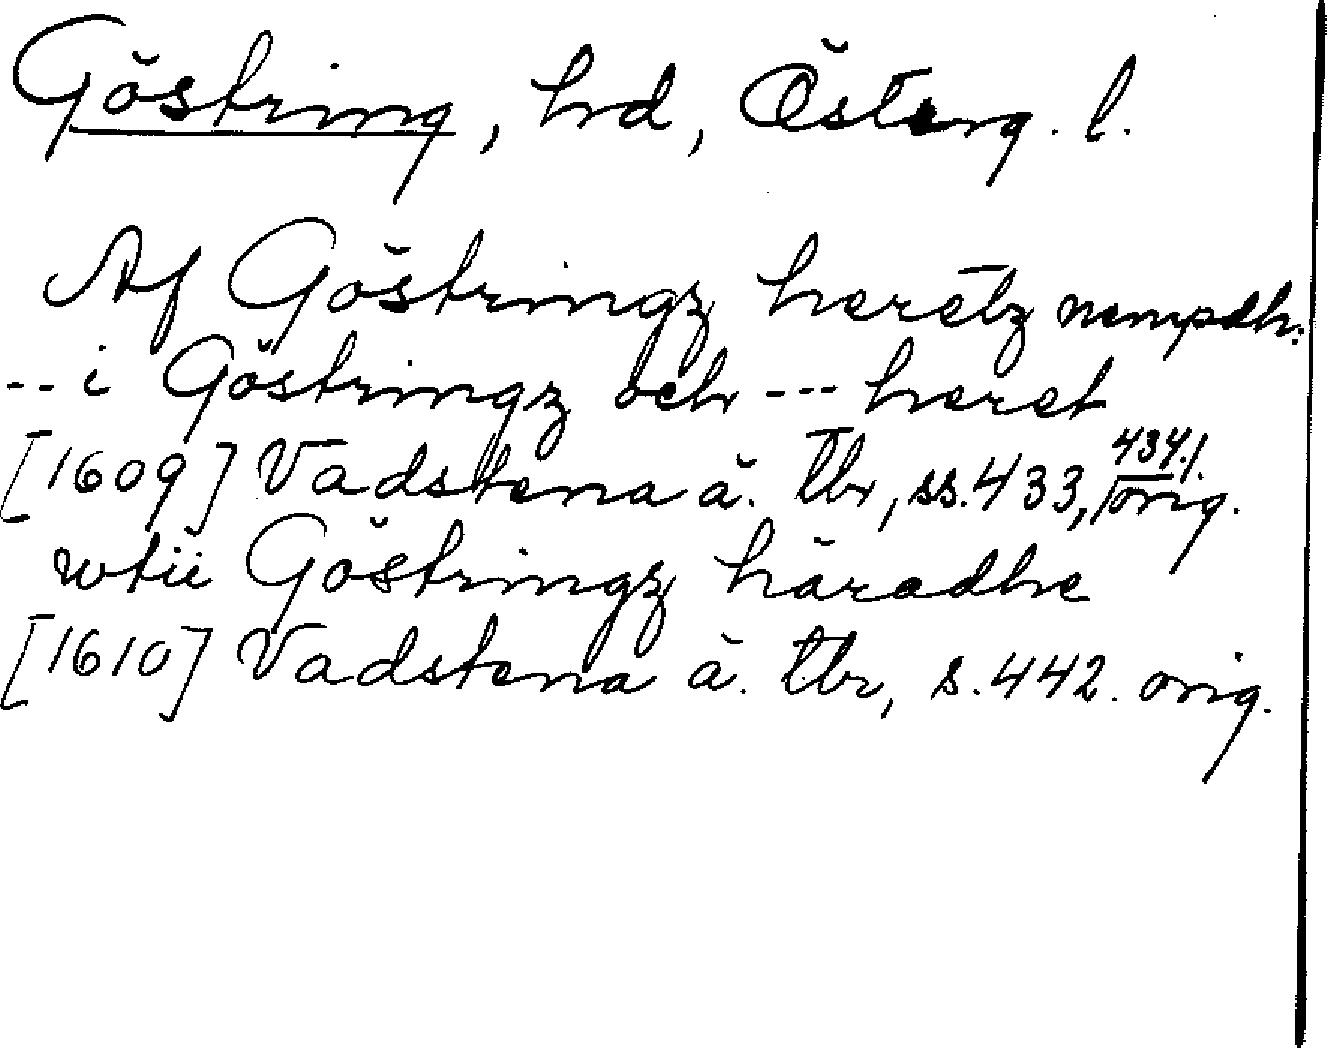 Göstring, hd, Österg. l.
Af Göstringz heretz nempdh:
-- i Göstringz och --- heret
[1609] Vadstena ä. tbr, ss. 433, 434. orig.
wtii Göstringz häradhe
[1610] Vadstena ä. tbr, s. 442. orig.